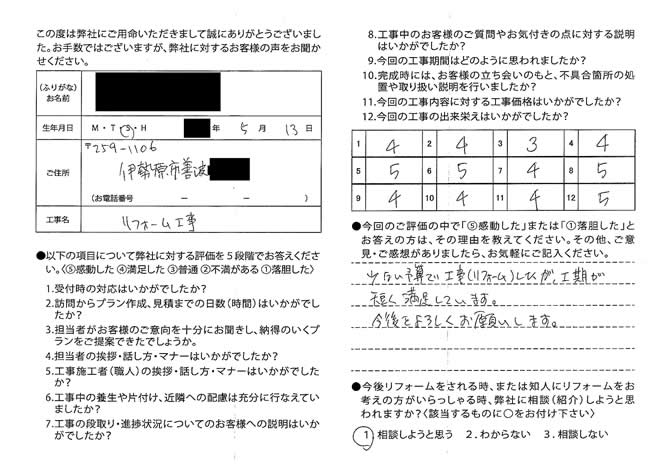 この度は弊社にご用命いただきまして誠にありがとうございました。
お手数ではございますが、弊社に対するお客様の声をお聞かせください。
(ふりがな)
お名前
生年月日
M・T・S・H 年 5 月 13 日
ご住所
〒259-1106
伊勢原市善波
(お電話番号 － － )
工事名
リフォーム工事
●以下の項目について弊社に対する評価を5段階でお答えください。
〈⑤感動した ④満足した ③普通 ②不満がある ①落胆した〉
1.受付時の対応はいかがでしたか?
2.訪問からプラン作成、見積までの日数(時間)はいかがでしたか?
3.担当者がお客様のご意向を十分にお聞きし、納得のいくプランをご提案できたでしょうか。
4.担当者の挨拶・話し方・マナーはいかがでしたか?
5.工事施工者(職人)の挨拶・話し方・マナーはいかがでしたか?
6.工事中の養生や片付け、近隣への配慮は充分に行なえていましたか?
7.工事の段取り・進捗状況についてのお客様への説明はいかがでしたか?
8.工事中のお客様のご質問やお気付きの点に対する説明はいかがでしたか?
9.今回の工事期間はどのように思われましたか?
10.完成時には、お客様の立ち会いのもと、不具合箇所の処置や取り扱い説明を行いましたか?
11.今回の工事内容に対する工事価格はいかがでしたか?
12.工事の出来栄えはいかがでしたか?
1 4 2 4 3 3 4 4
5 5 6 5 7 4 8 5
9 4 10 4 11 4 12 5
●今回のご評価の中で「⑤感動した」または「①落胆した」とお答えの方は、その理由を教えてください。その他、ご意見・ご感想がありましたら、お気軽にご記入ください。
工事(リフォーム)したが、工期が
短く満足しています。
今後もよろしくお願いします。
●今後リフォームをされる時、または知人にリフォームをお考えの方がいらっしゃる時、弊社に相談(紹介)しようと思われますか?〈該当するものに○をお付け下さい〉
1.相談しようと思う 2.わからない 3.相談しない